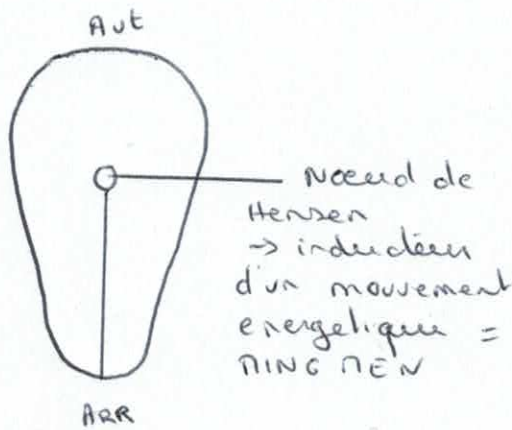 Avt
Nœud de
Hensen
→ inducteur
d'un mouvement
energetique =
MING MEN
ARR